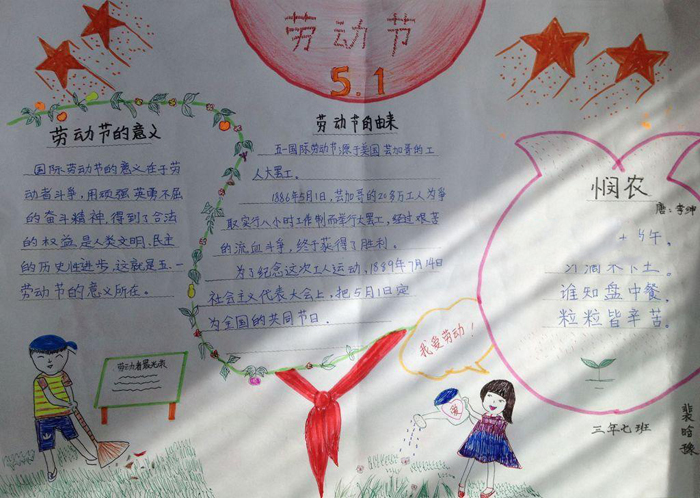 劳动节
5.1
劳动节的意义
国际劳动节的意义在于劳
动者斗争,用顽强英勇不屈
的奋斗精神,得到了合法
的权益,是人类文明,民主
的历史性进步,这就是五.一
劳动节的意义所在。
劳动节的由来
五一国际劳动节源于美国芝加哥的工
人大罢工。
1886年5月1日,芝加哥的20多万工人为争
取实行八小时工作制而举行大罢工,经过艰苦
的流血斗争,终于获得了胜利。
为了纪念这次工人运动,1889年7月14日
社会主义代表大会上,把5月1日定
为全国的共同节日.
悯农
唐:李绅
午。
滴禾下土。
谁知盘中餐,
粒粒皆辛苦。
劳动者最光荣
我爱劳动!
爱
三年七班
裴晗